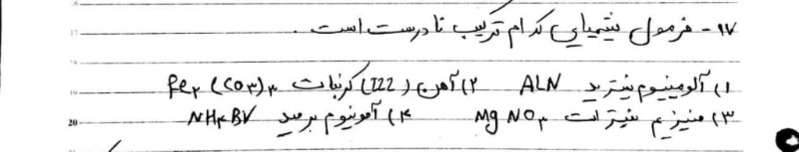 ۱۷- فرمول شیمیایی کدام ترکیب نادرست است.
۱) آلومینیوم نیترید ALN ۲) آهن (III) کربنات Fe۲(CO۳)۳
20 ۳) منیزیم نیترات MgNO۳ ۴) آمونیوم برمید NH۴BV